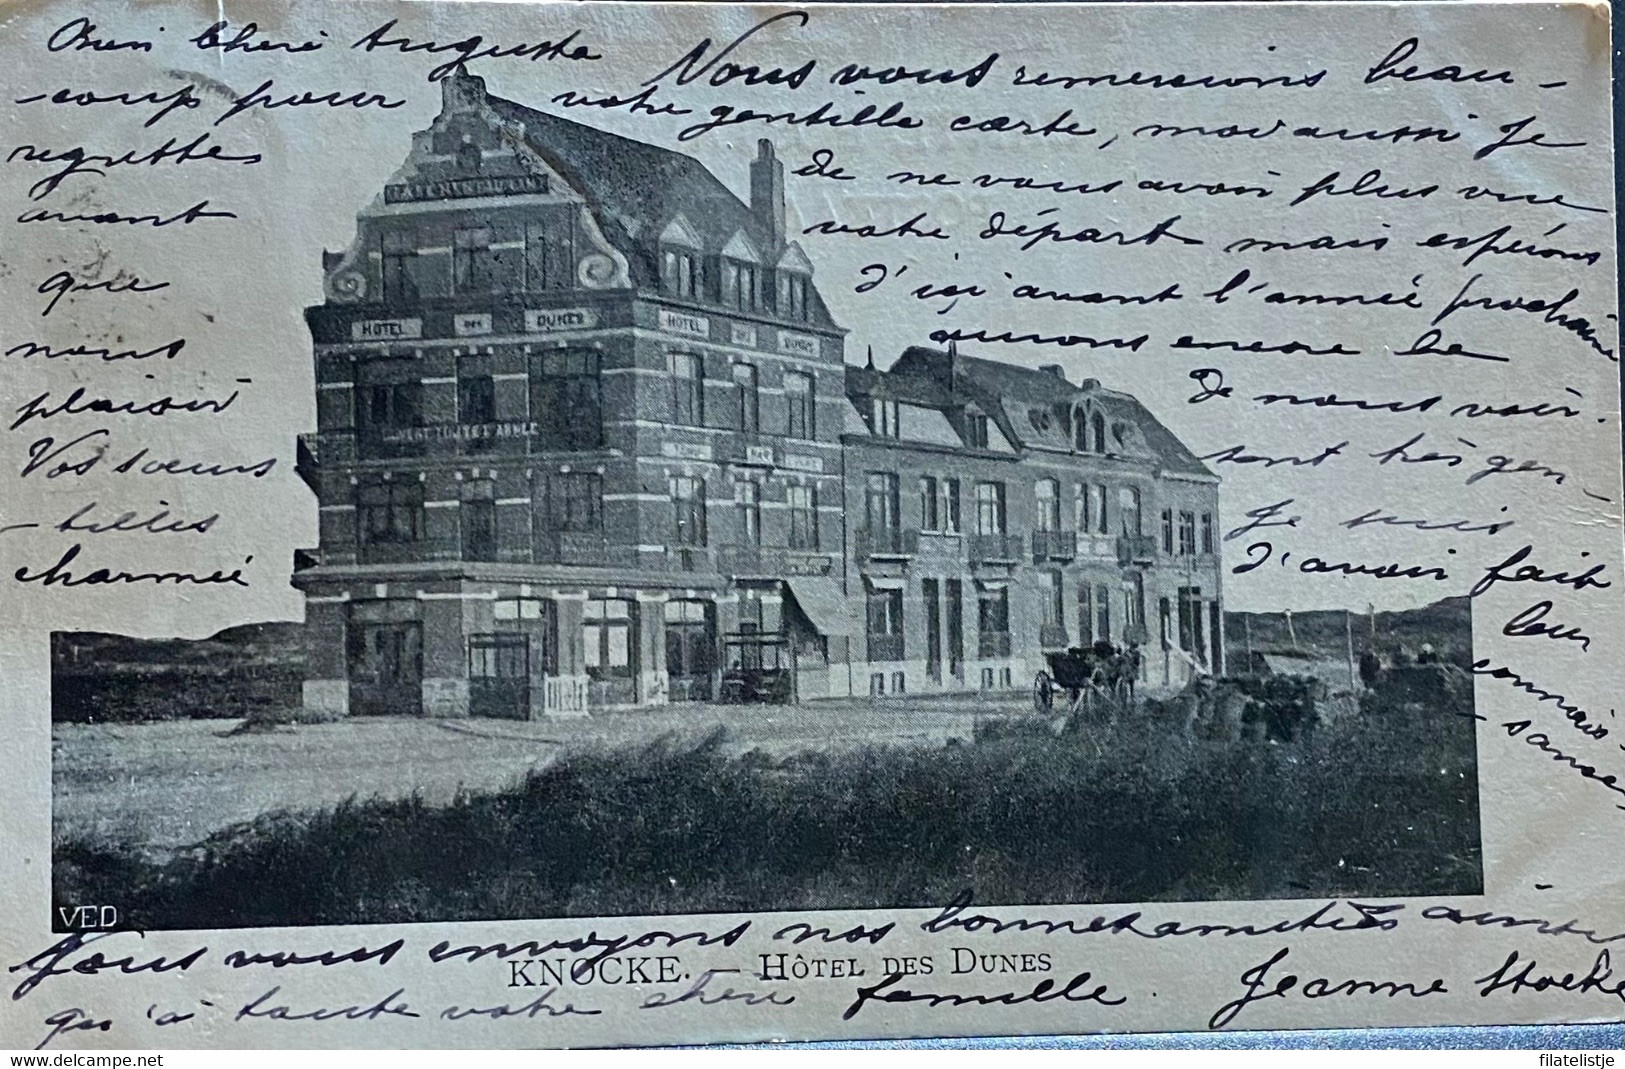 Bien Cheré Augusta
Nous vous remercions beau-
-coup pour votre gentille carte, moi aussi Je
regrettes de ne vous avoir plus vue
avant votre départ mais espérons
que d'ici avant l'année prochaine
nous aurons encore le
plaisir de nous voir.
Vos sœurs sont très gen-
-tilles Je suis
charmée d'avoir fait
leur
connais-
-sance
Nous vous envoyons nos bonnes amitiés ainsi
qu'à toute votre chere famille. Jeanne Stoeke
HOTEL DES DUNES HOTEL DES DUNES
OUVERT TOUTE L'ANNEE
VED
KNOCKE. — HÔTEL DES DUNES
filatelistje
delcampe.net